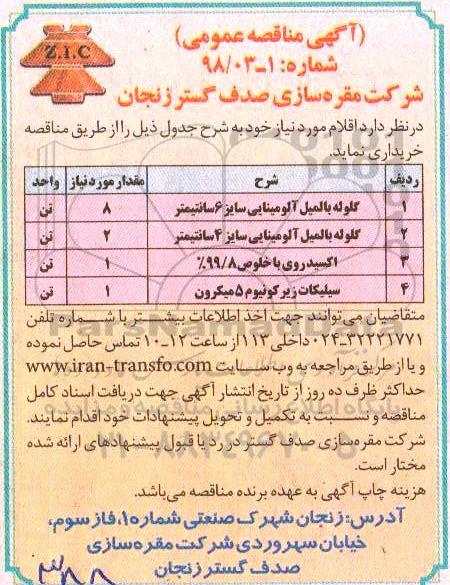 Z.I.C
(آگهی مناقصه عمومی)
شماره: ۱ـ۹۸/۰۳
شرکت مقره‌سازی صدف گستر زنجان
درنظر دارد اقلام مورد نیاز خود به شرح جدول ذیل را از طریق مناقصه
خریداری نماید.
ردیف شرح مقدار مورد نیاز واحد
۱ گلوله بالمیل آلومینایی سایز ۶ سانتیمتر ۸ تن
۲ گلوله بالمیل آلومینایی سایز ۴ سانتیمتر ۲ تن
۳ اکسید روی با خلوص ۹۹/۸٪ ۱ تن
۴ سیلیکات زیرکونیوم ۵ میکرون ۱ تن
متقاضیان می‌توانند جهت اخذ اطلاعات بیشتر با شماره تلفن
۳۲۲۲۱۷۷۱ـ۰۲۴ داخلی ۱۱۳ از ساعت ۱۲ـ۱۰ تماس حاصل نموده
و یا از طریق مراجعه به وب سایت www.iran-transfo.com
حداکثر ظرف ده روز از تاریخ انتشار آگهی جهت دریافت اسناد کامل
مناقصه و نسبت به تکمیل و تحویل پیشنهادات خود اقدام نمایند.
شرکت مقره‌سازی صدف گستر در رد یا قبول پیشنهادهای ارائه شده
مختار است.
هزینه چاپ آگهی به عهده برنده مناقصه می‌باشد.
آدرس: زنجان شهرک صنعتی شماره ۱، فاز سوم،
خیابان سهروردی شرکت مقره‌سازی
صدف گستر زنجان